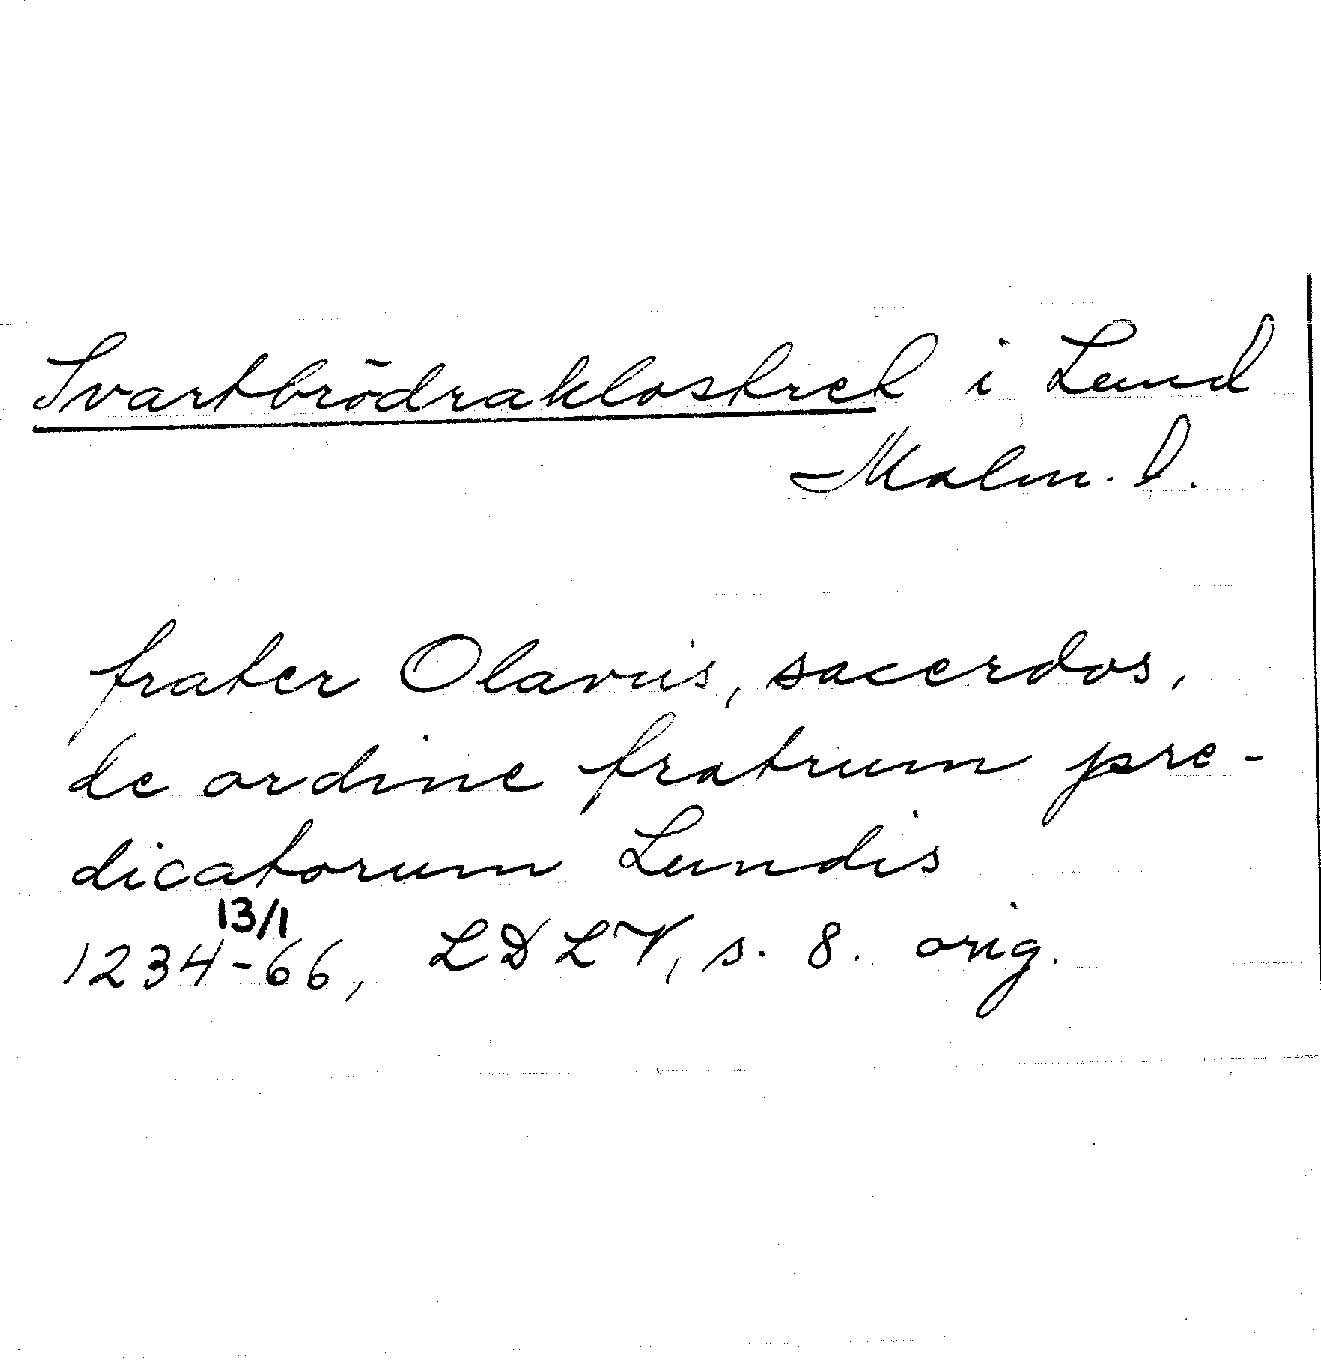 Svartbrödraklostret i Lund
Malm. l.
frater Olavus, sacerdos,
de ordine fratrum pre-
dicatorum Lundis
13/1
1234-66, LDLV, s. 8. orig.